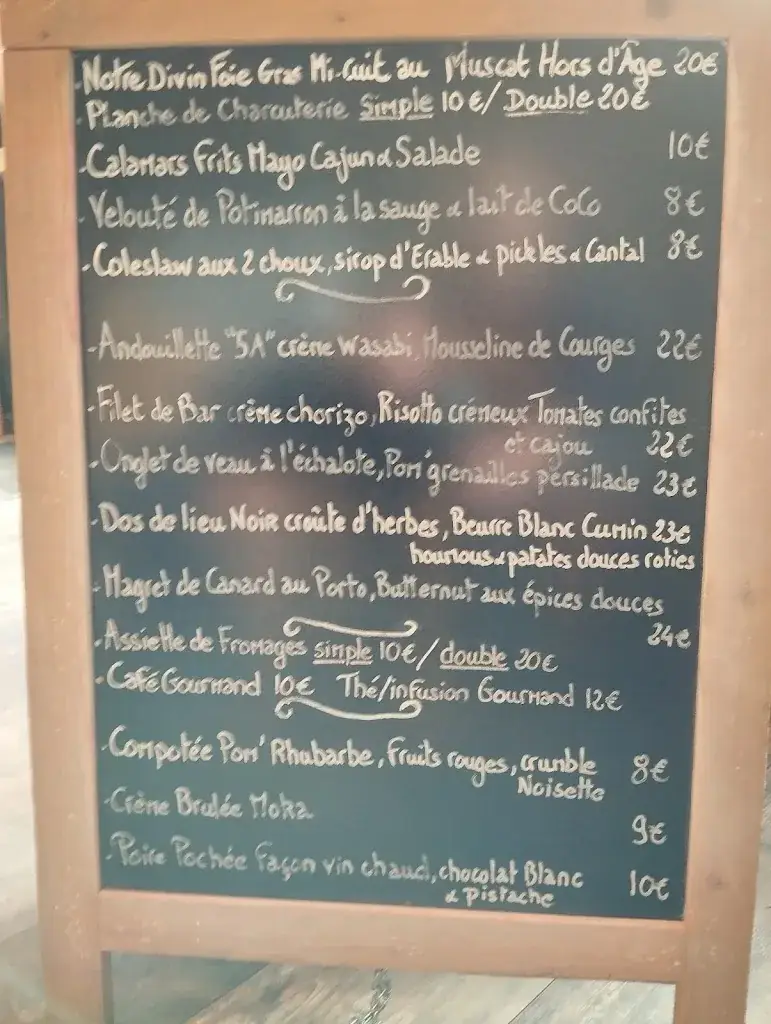 - Notre Divin Foie Gras Mi-Cuit au Muscat Hors d'Âge 20€
- Planche de Charcuterie Simple 10€/ Double 20€
- Calamars Frits Mayo Cajun & Salade 10€
- Velouté de Potimarron à la sauge & lait de CoCo 8€
- Coleslaw aux 2 choux, sirop d'Erable & pickles & Cantal 8€
- Andouillette "5A" crème wasabi, Mousseline de Courges 22€
- Filet de Bar crème chorizo, Risotto crémeux Tomates confites
et cajou 22€
- Onglet de veau à l'échalote, Pom' grenailles persillade 23€
- Dos de lieu Noir croûte d'herbes, Beurre Blanc Cumin 23€
houmous & patates douces roties
- Magret de Canard au Porto, Butternut aux épices douces
24€
- Assiette de Fromages simple 10€/ double 20€
- Café Gourmand 10€ Thé/infusion Gourmand 12€
- Compotée Pom' Rhubarbe, Fruits rouges, crumble 8€
Noisette
- Crème Brulée Moka 9€
- Poire Pochée façon vin chaud, chocolat Blanc 10€
& Pistache